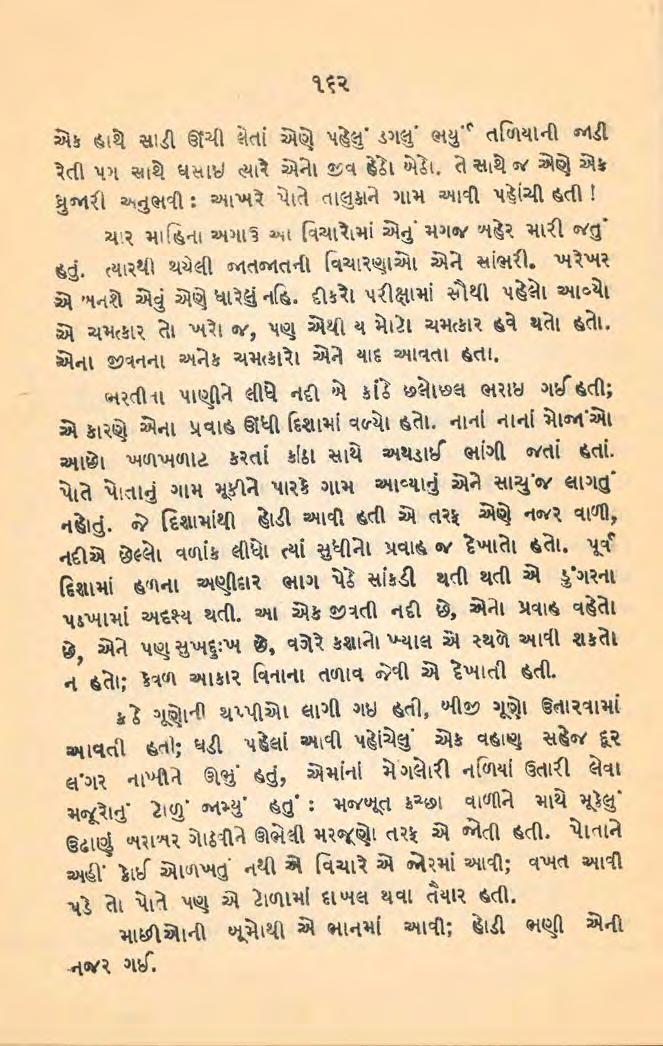 ૧૬૨
એક હાથે સાડી ઊંચી લેતાં એણે પહેલું ડગલું ભર્યું તળિયાની જાડી
રેતી પગ સાથે ઘસાઇ ત્યારે એનો જીવ હેઠો બેઠો. તે સાથે જ એણે એક
ધ્રુજારી અનુભવી : આખરે પોતે તાલુકાને ગામ આવી પહોંચી હતી !
ચાર માહિના અગાઉ આ વિચારોમાં એનું મગજ બહેર મારી જતું
હતું. ત્યારથી થયેલી જાતજાતની વિચારણાઓ એને સાંભરી. ખરેખર
એ બનશે એવું એણે ધારેલું નહિ. દીકરો પરીક્ષામાં સૌથી પહેલો આવ્યો
એ ચમત્કાર તો ખરો જ, પણ એથી ય મોટો ચમત્કાર હવે થતો હતો.
એના જીવનના અનેક ચમત્કારો એને યાદ આવતા હતા.
ભરતીના પાણીને લીધે નદી બે કાંઠે છલોછલ ભરાઇ ગઈ હતી;
એ કારણે એના પ્રવાહ ઊંધી દિશામાં વળ્યો હતો. નાનાં નાનાં મોજાંઓ
આછો ખળખળાટ કરતાં કાંઠા સાથે અથડાઈ ભાંગી જતાં હતાં.
પોતે પોતાનું ગામ મૂકીને પારકે ગામ આવ્યાનું એને સાચું જ લાગતું
નહોતું. જે દિશામાંથી હોડી આવી હતી એ તરફ એણે નજર વાળી,
નદીએ છેલ્લો વળાંક લીધો ત્યાં સુધીનો પ્રવાહ જ દેખાતો હતો. પૂર્વ
દિશામાં હળના અણીદાર ભાગ પેઠે સાંકડી થતી થતી એ ડુંગરના
પડખામાં અદૃશ્ય થતી. આ એક જીવતી નદી છે, એનો પ્રવાહ વહેતો
છે, એને પણ સુખદુઃખ છે, વગેરે કશાનો ખ્યાલ એ સ્થળે આવી શકતો
ન હતો; કેવળ આકાર વિનાના તળાવ જેવી એ દેખાતી હતી.
કાંઠે ગૂણોની થપ્પીઓ લાગી ગઇ હતી, બીજી ગૂણો ઉતારવામાં
આવતી હતી; ઘડી પહેલાં આવી પહોંચેલું એક વહાણ સહેજ દૂર
લંગર નાખીને ઊભું હતું, એમાંનાં મેંગલોરી નળિયાં ઉતારી લેવા
મજૂરોનું ટોળું જામ્યું હતું : મજબૂત કચ્છા વાળીને માથે મૂકેલું
ઉઢાણું બરાબર ગોઠવીને ઊભેલી મરજૂણો તરફ એ જોતી હતી. પોતાને
અહીં કોઈ ઓળખતું નથી એ વિચારે એ જોરમાં આવી; વખત આવી
પડે તો પોતે પણ એ ટોળામાં દાખલ થવા તૈયાર હતી.
માછીઓની બૂમોથી એ ભાનમાં આવી; હોડી ભણી એની
નજર ગઈ.